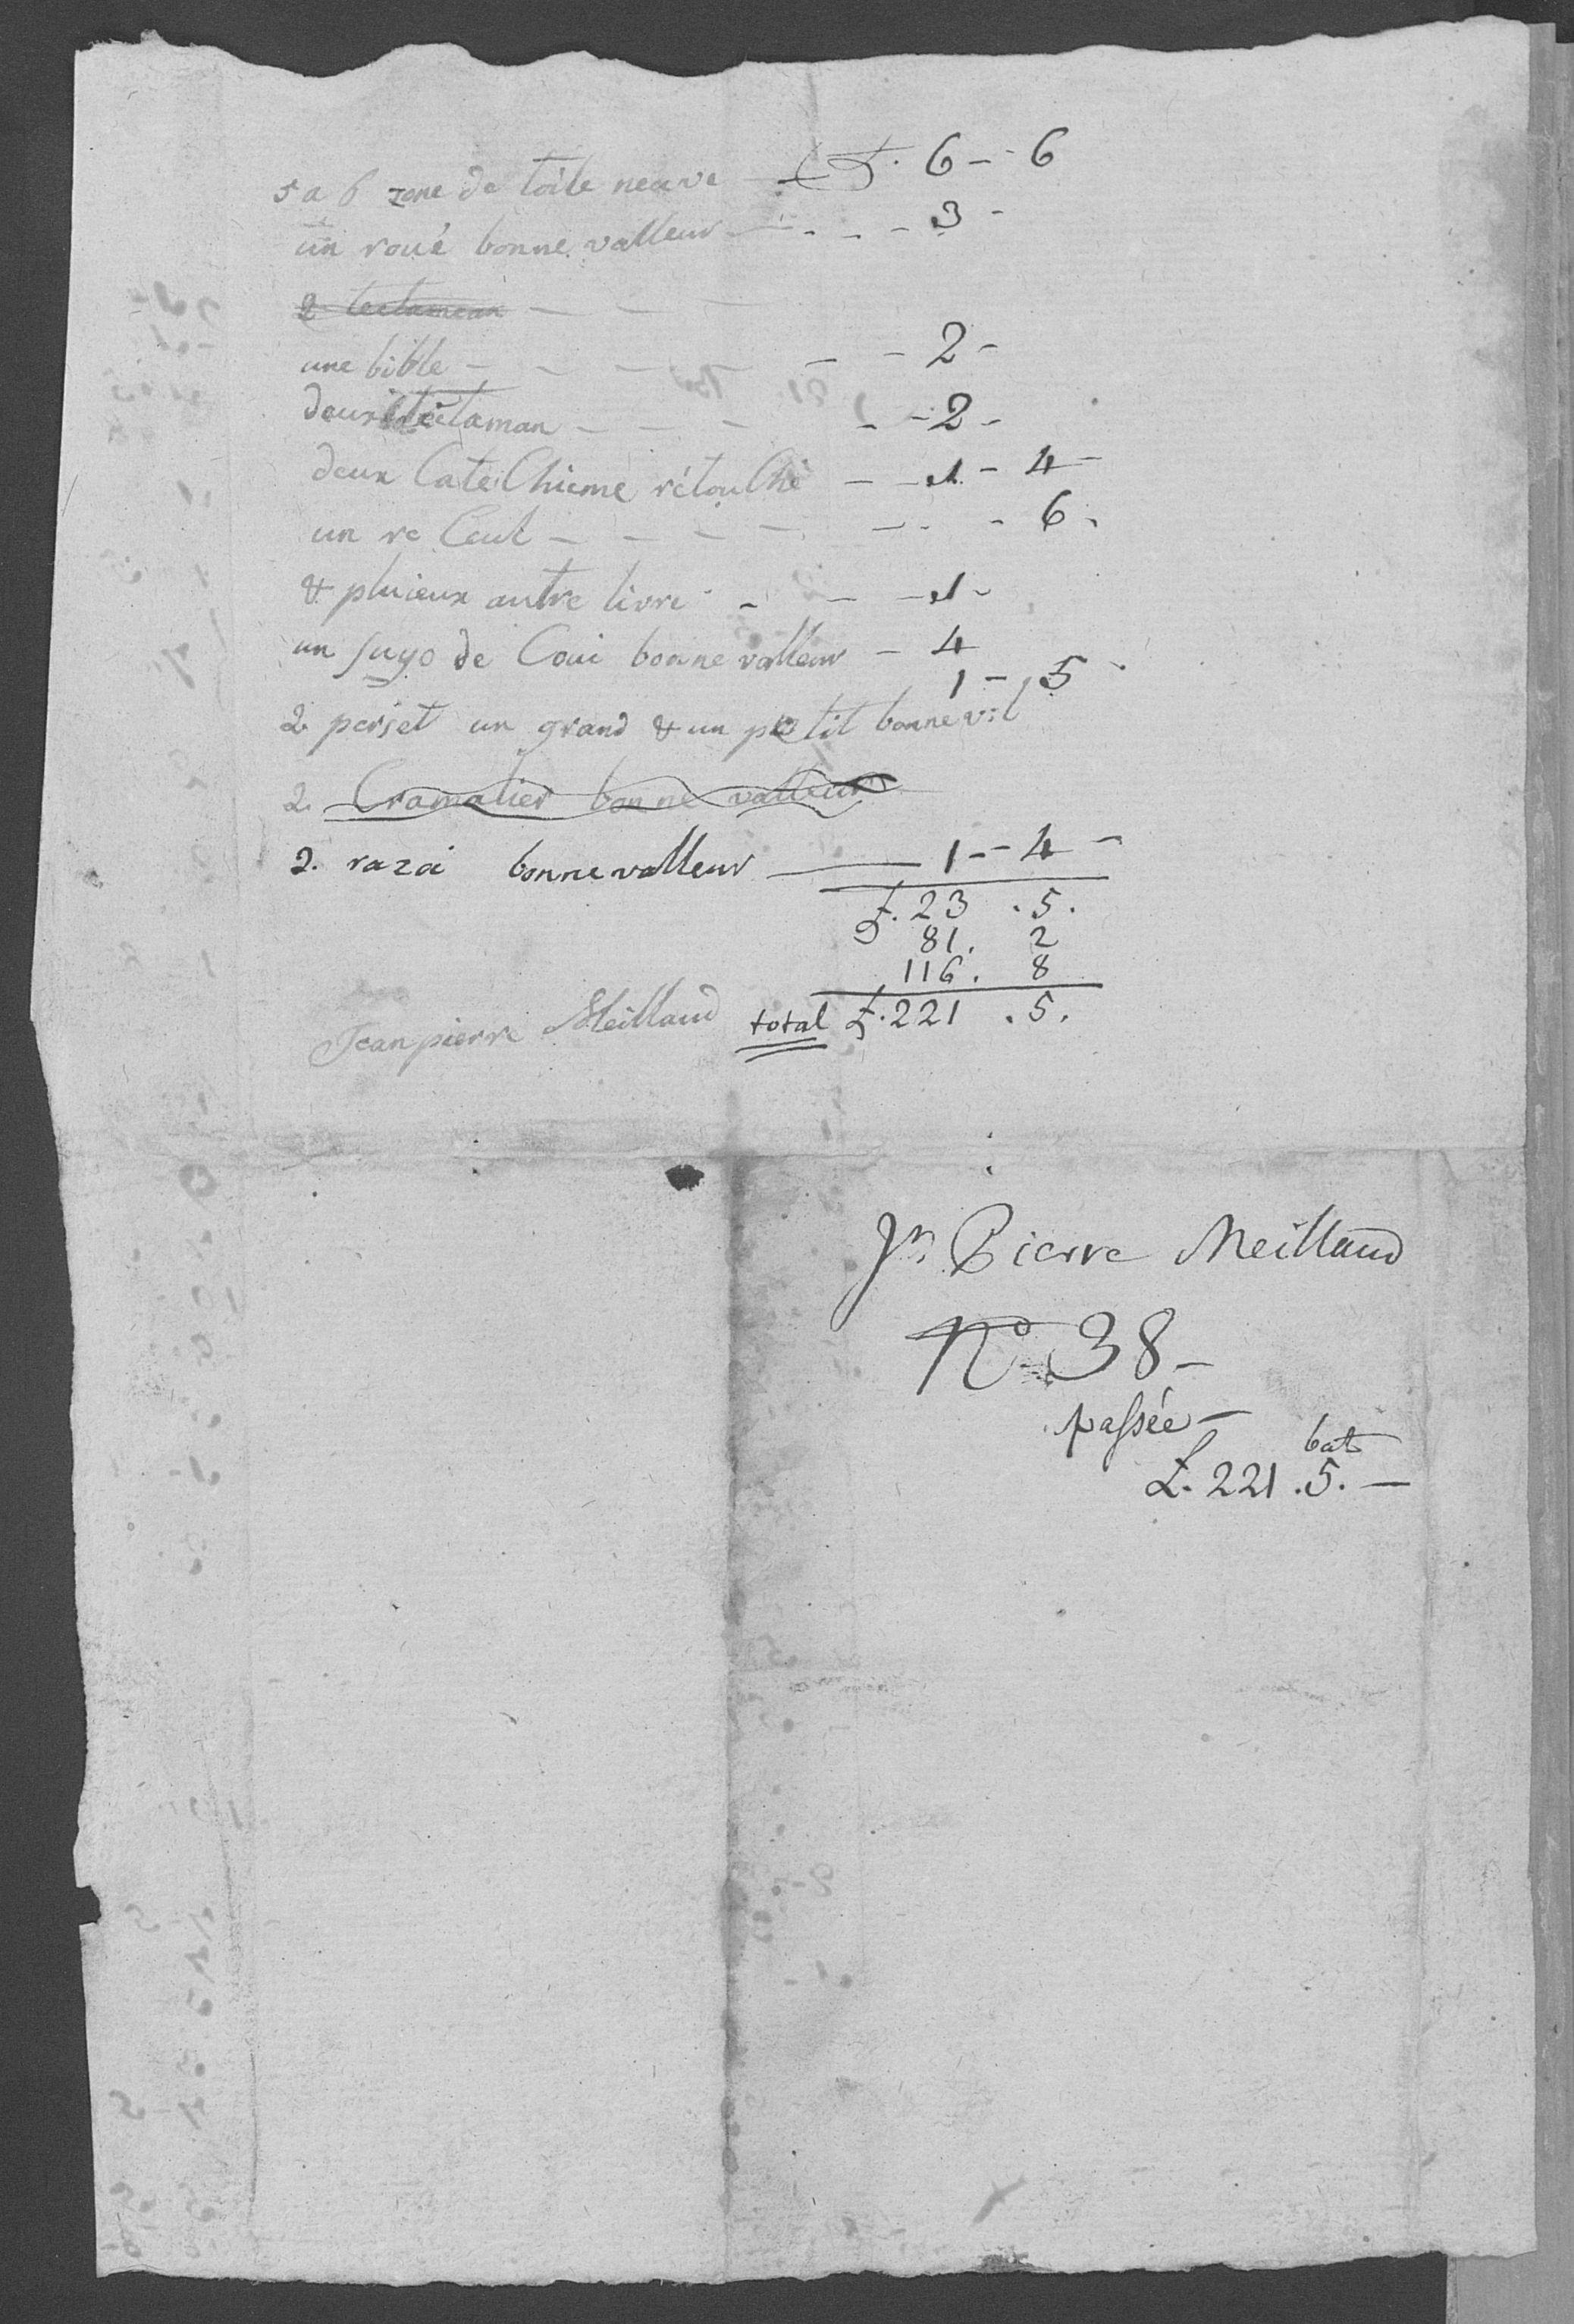 5 a 6 zone de toile neuve £. 6 - 6
un roué bonne valleur - - - 3 -
2 tectaman - -
une bible - - - - - 2 -
deux tectaman - - - - - 2 -
deux CateChieme rétouChé - - 1 - 4 -
un re Ceul - - - - - - 6 -
& pluieux autre livre - - - 1 -
un suyo de Coui bonne valleur - 4
1 - 5 -
2 perset un grand & un petit bonne val
2. Cramalier bonne valleur
2. razoi bonne valleur 1 - - 4 -
£. 23 . 5.
81. 2
116. 8
Jean pierre Meillaud total £. 221 . 5.
Jn Pierre Meillaud
No 38 -
passée -
bat
£. 221 . 5. -